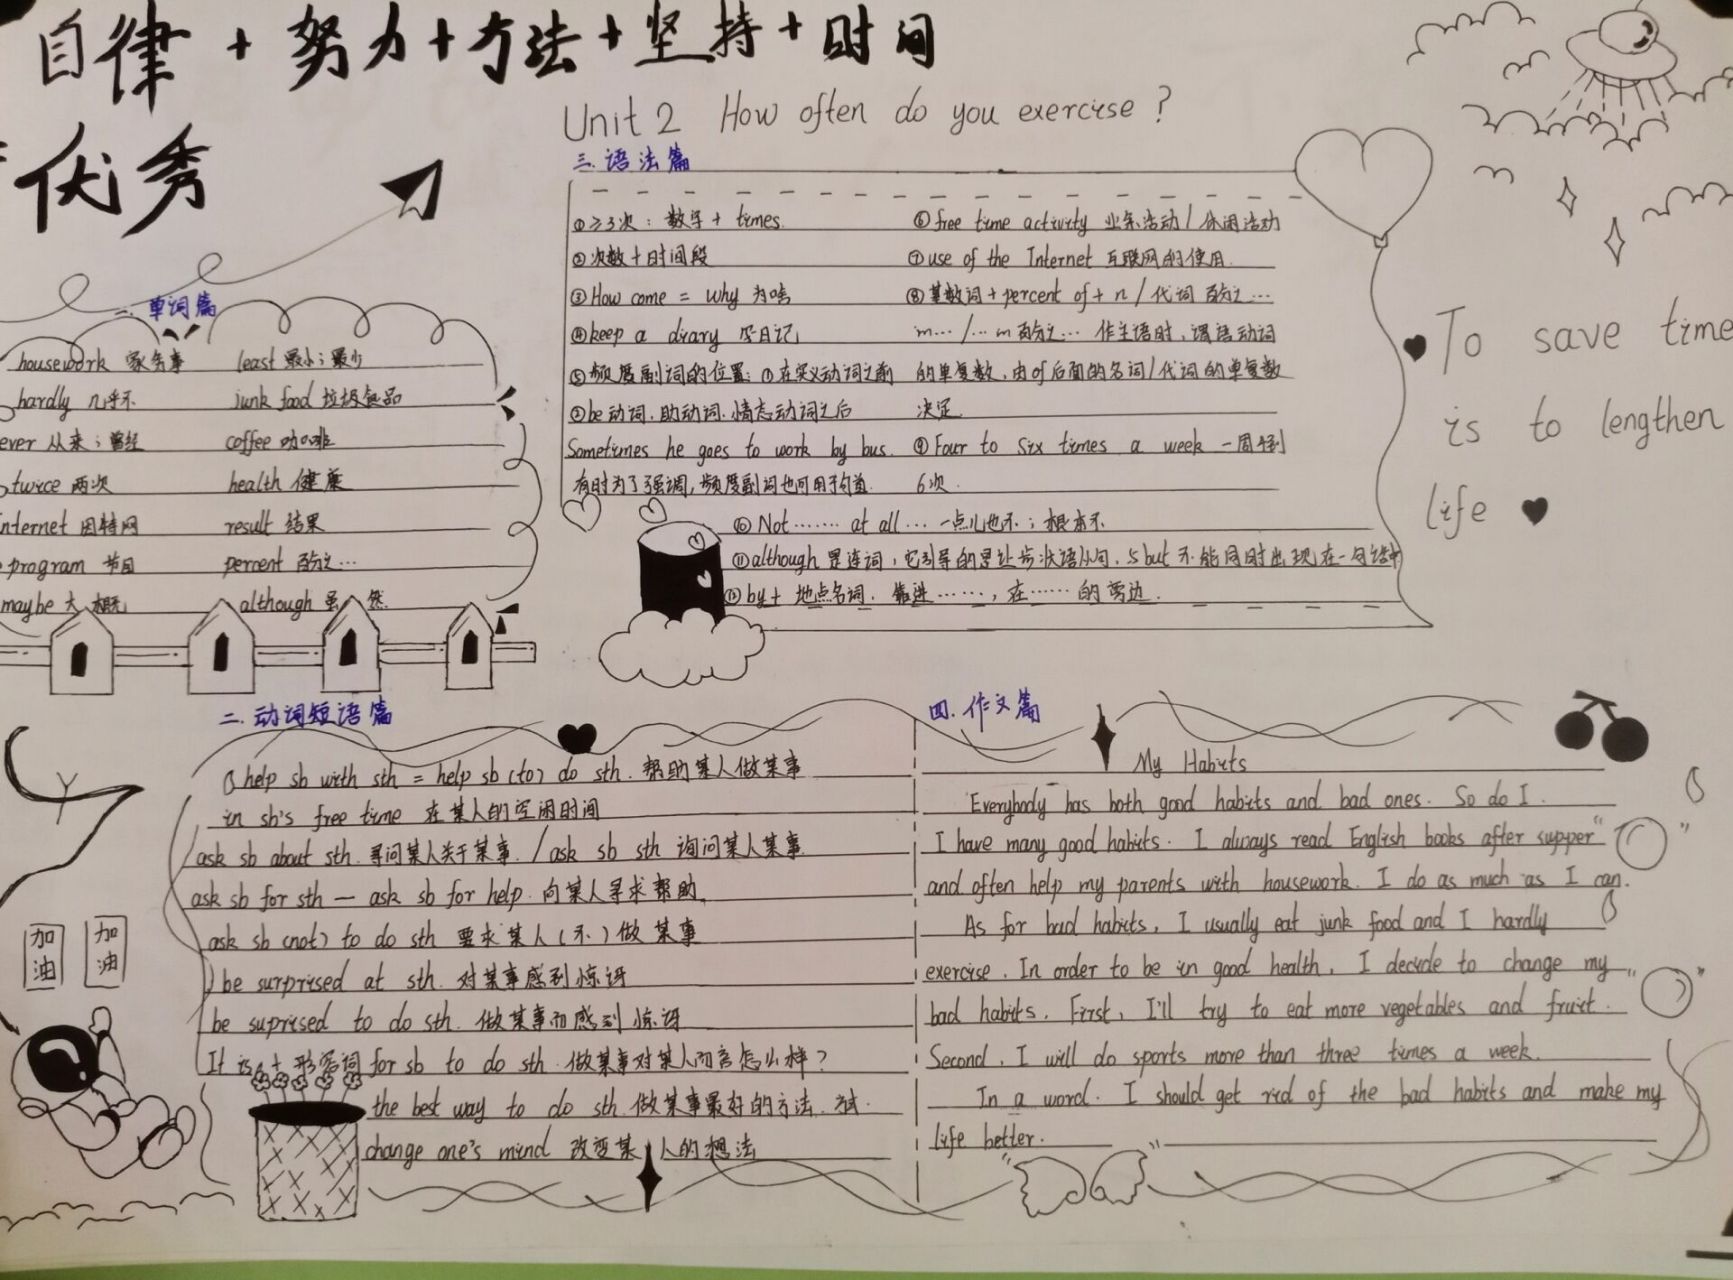 自律+努力+方法+坚持+时间
=优秀
Unit 2 How often do you exercise?
一. 单词篇
housework 家务事 least 最小;最少
hardly 几乎不 junk food 垃圾食品
ever 从来;曾经 coffee 咖啡
twice 两次 health 健康
Internet 因特网 result 结果
program 节目 percent 百分之…
maybe 大概 although 虽然
三. 语法篇
①≥3次:数字+times.
②次数+时间段
③How come = why 为啥
④keep a diary 写日记
⑤频度副词的位置:①在实义动词之前
②be动词.助动词.情态动词之后
Sometimes he goes to work by bus.
有时为了强调,频度副词也可用于句首.
⑥free time activity 业余活动/休闲活动
⑦use of the Internet 互联网的使用.
⑧基数词+percent of+n/代词 百分之…
…/…百分之… 作主语时,谓语动词
的单复数,由of后面的名词/代词的单复数
决定.
⑨Four to six times a week 一周4到
6次.
⑩Not…… at all… 一点儿也不;根本不
⑪although 是连词,它引导的是让步状语从句,与but不能同时出现在一句话中
⑫by+地点名词. 靠近……,在……的旁边.
To save time
is to lengthen
life
二. 动词短语篇
help sb with sth = help sb (to) do sth. 帮助某人做某事
in sb's free time 在某人的空闲时间
ask sb about sth. 寻问某人关于某事. / ask sb sth 询问某人某事.
ask sb for sth — ask sb for help. 向某人寻求帮助.
ask sb (not) to do sth 要求某人(不)做某事
be surprised at sth. 对某事感到惊讶
be suprised to do sth. 做某事而感到惊讶
It is + 形容词 for sb to do sth. 做某事对某人而言怎么样?
the best way to do sth. 做某事最好的方法.
change one's mind 改变某人的想法
四. 作文篇
My Habits
Everybody has both good habits and bad ones. So do I.
I have many good habits. I always read English books after supper
and often help my parents with housework. I do as much as I can.
As for bad habits, I usually eat junk food and I hardly
exercise. In order to be in good health, I decide to change my
bad habits. First, I'll try to eat more vegetables and fruit.
Second, I will do sports more than three times a week.
In a word. I should get rid of the bad habits and make my
life better.
加油
加油